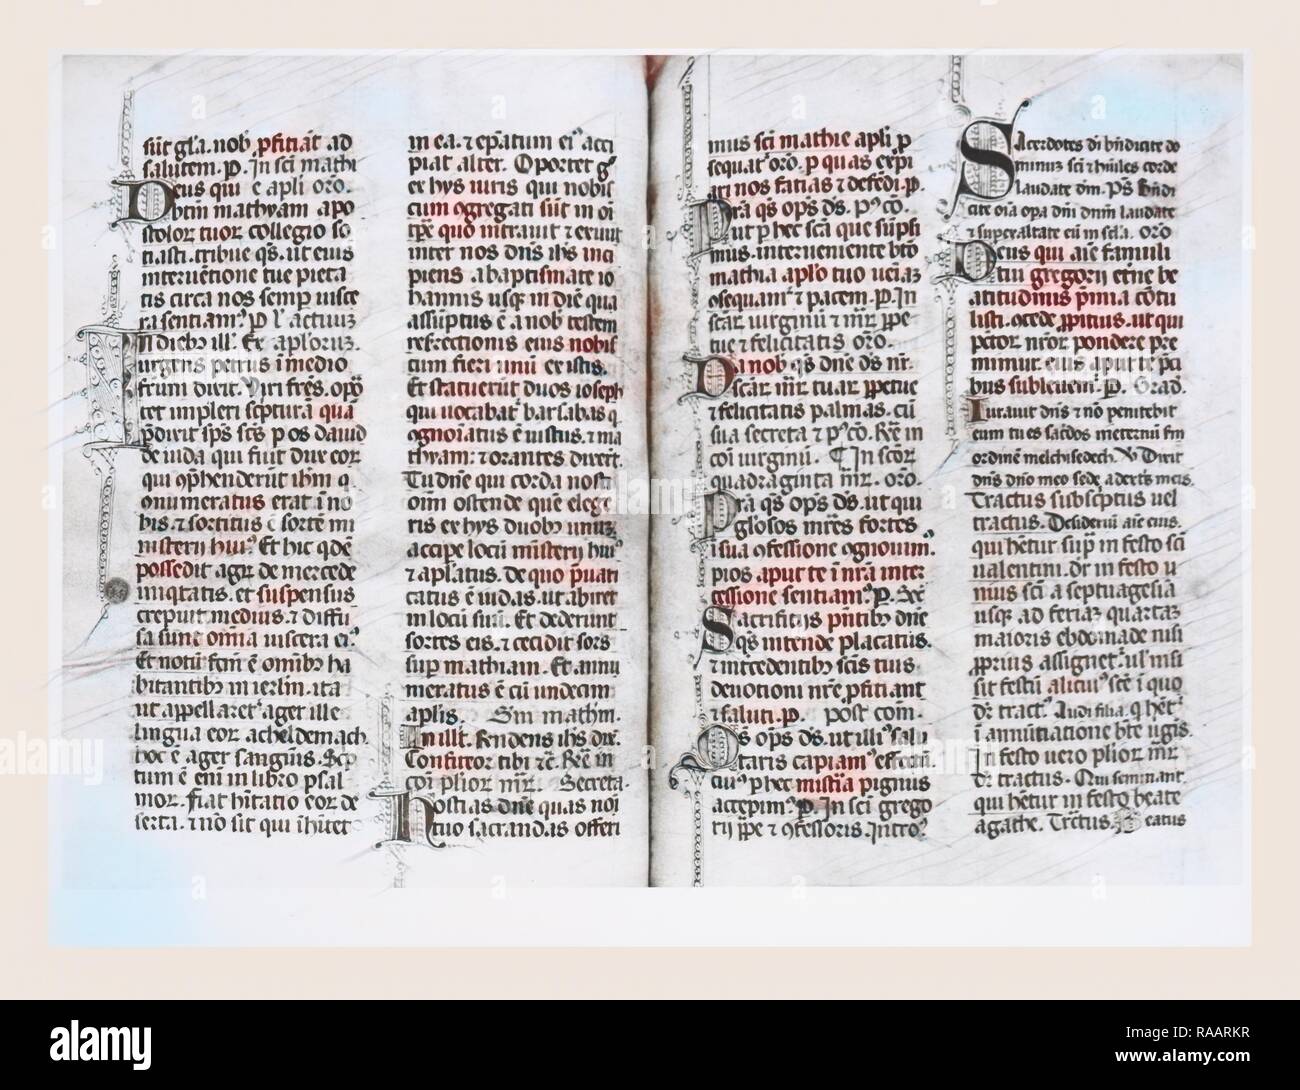 sūt gl̄a. nob᷎ p̄fitiāt ad
salutem. P. In sc̄i mathi
Deus qui e apli oro.
btm mathyam apo
stolor tuor collegio so
tiasti. tribue q̄s. ut eius
interuētione tue pieta
tis circa nos semp uisce
ra sentiam᷒ P l' actuum
In dieb᷎ ill. Ex
surgens petrus ī medio
frum dixit. Viri fres. opo
tet impleri scptura qua
p̄dixit sps scs p os dauid
de iuda qui fuit dux eor
qui cp̄henderūt ihm. q
cnumeratus erat ī no
bis. et sortitus ē sorte mi
nisterij hui᷒. Et hic qdē
possedit agr de mercede
iniqtatis. et suspensus
crepuit medius. et diffu
sa sunt omīa uiscera ei᷒
Et notū fcm ē omīb᷎ ha
bitantib᷎ in ierlm. ita
ut appellaret᷒ ager ille
lingua eor acheldemach
hoc ē ager sanginis. Scp
tum ē enī in libro psal
mor. Fiat hītatio eor de
serta. et nō sit qui īhitet
in ea. et epatum ei᷒ acci
piat alter. Oportet g᷎
ex hys uiris qui nobis
cum cgregati sūt in oī
tpe quo intrauit et exiuit
inter nos dns ihs inci
piens a baptismate io
hannis usq᷎ in diē qua
assūptus ē a nob testem
resrectionis eius nobis
cum fieri unū ex istis.
Et statuerūt duos ioseph
qui uocabat᷒ barsabas q
cgnoiatus ē iustus. et ma
thyam: et orantes dixert.
Tu dnē qui corda nosti
oīm ostende quē elege
ris ex hys duob᷎ unum
accipe locū misterij hui᷒
et aplatus. de quo p̄uari
catus ē iudas. ut abiret
in locū suū. Et dederunt
sortes eis. et cecidit sors
sup mathiam. Et annu
meratus ē cū undecim
aplis. Sm mathm.
In illt. Rndens ihs dix.
Confiteor tibi et c̄. Re in
coī plior mr. Secreta.
Hostias dnē quas noī
tuo sacrandas offeri
mus sci mathie apli p
sequat᷒ oro. p quas expi
ari nos facias et defedi. P.
Pra q̄s ops ds. P᷒ co.
ut p hec scā que sūpsi
mus. interueniente bto
mathia aplo tuo ueiam
csequam᷒ et pacem. P. In
scar uirginū et mr ppe
tue et felicitatis oro.
Da nob q̄s dnē ds nr.
scar mr tuar ppetue
et felicitatis palmas. cū
sua secreta et p᷒ co. Re in
coī uirginū. In scor
quadraginta mr. oro.
Pra q̄s ops ds. ut qui
glosos mres fortes
ī sua cfessione cgnouim᷒
pios aput te ī nra inter
cessione sentiam᷒ P. Sec
Sacrificijs p̄ntib᷎ dnē
q̄s intende placatus.
et intcedentib᷎ scis tuis
deuotioni nre pfitiant
et saluti. P. post com.
Os ops ds. ut illi᷒ salu
taris capiam᷒ effectū.
cui᷒ p hec mistia pignus
accepim᷒ P. In sci grego
rij ppe et cfessoris. Intro᷒
Sacerdotes di bn̄dicite do
minus sci et hūiles corde
laudate dm. Ps Bn̄di
cite oīa opa dni dnm laudate
et supexaltate eū in scla. Oro
Deus qui aīe famuli
tui gregorij etne be
atitudinis p̄mia cōtu
listi. ccede ppitius. ut qui
pctor nror pondere pre
mimur. eius aput te pci
bus subleuem᷒. P. Grad.
Iurauit dns et nō penitebit
eum tu es sacdos meternū sm
ordinē melchisedech. V Dixit
dns dno meo sede a dextris meis.
Tractus subscptus uel
tractus. Desideriū aīe eius.
qui hetur sup in festo sci
ualentini. dr in festo u
nius sci a septuagesia
usq᷎ ad feriam quartam
maioris ebdomade nisi
pprius assignet᷒ ul' nisi
sit festū alicui᷒ scē ī quo
dr tract᷒. Audi filia. q het᷒
ī annūtiatione bte ugis.
In festo uero plior mr
dr tractus. Qui seminant.
qui hetur in festo beate
agathe. Trctus. Beatus
alamy
Image ID: RAARKR
www.alamy.com